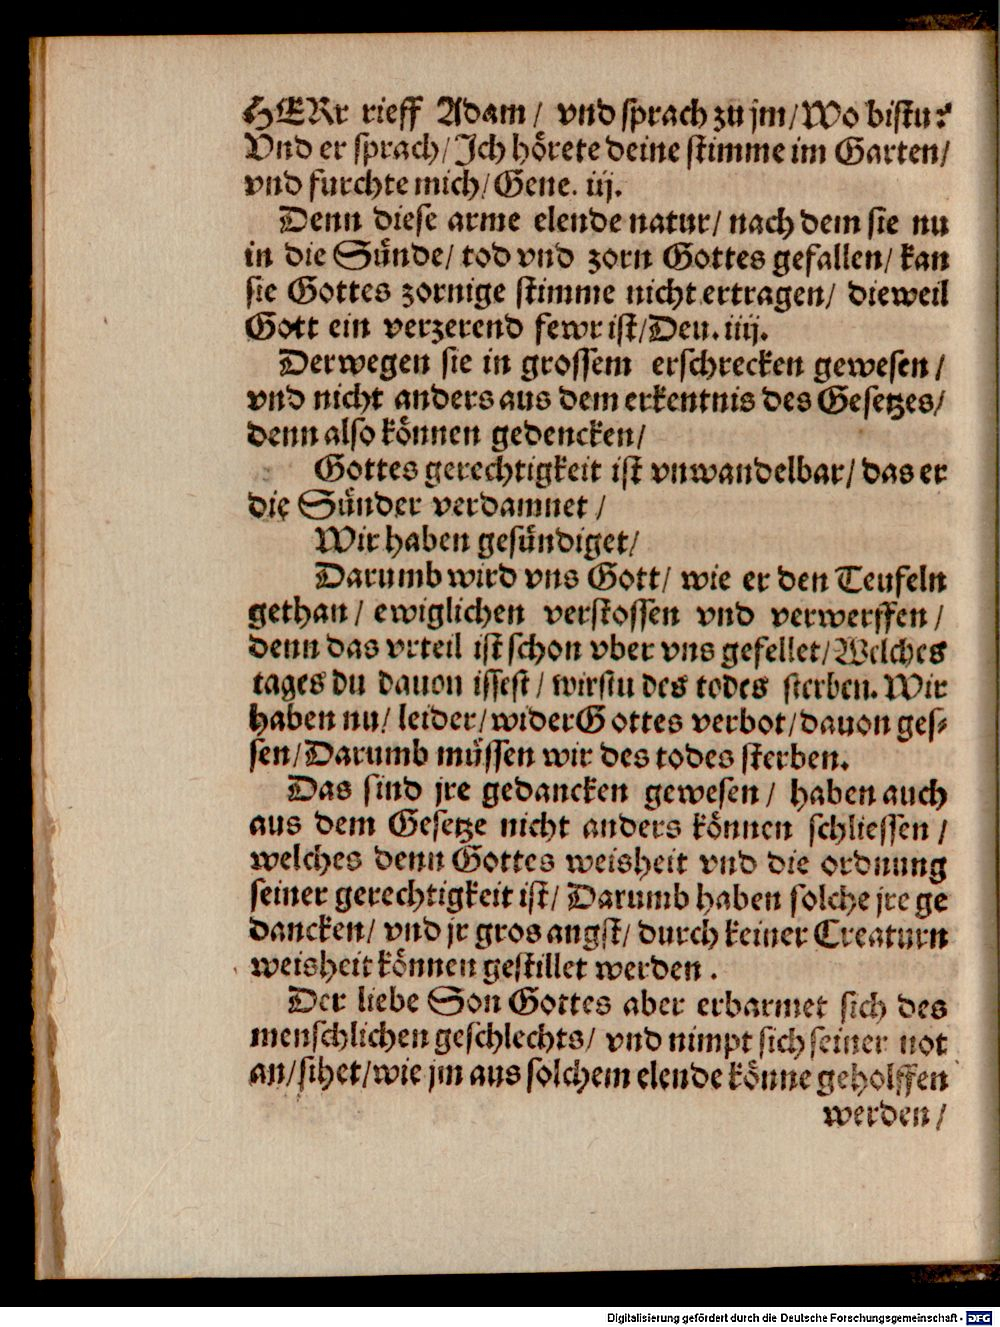 HERr rieff Adam / vnd sprach zu jm / Wo bistu?
Vnd er sprach / Ich hörete deine stimme im Garten /
vnd furchte mich / Gene. iij.
Denn diese arme elende natur / nach dem sie nu
in die Sünde / tod vnd zorn Gottes gefallen / kan
sie Gottes zornige stimme nicht ertragen / dieweil
Gott ein verzerend fewr ist / Deu. iiij.
Derwegen sie in grossem erschrecken gewesen /
vnd nicht anders aus dem erkentnis des Gesetzes /
denn also können gedencken /
Gottes gerechtigkeit ist vnwandelbar / das er
die Sünder verdamnet /
Wir haben gesündiget /
Darumb wird vns Gott / wie er den Teufeln
gethan / ewiglichen verstossen vnd verwerffen /
denn das vrteil ist schon vber vns gefellet / Welches
tages du dauon issest / wirstu des todes sterben. Wir
haben nu / leider / wider Gottes verbot / dauon ges-
sen / Darumb müssen wir des todes sterben.
Das sind jre gedancken gewesen / haben auch
aus dem Gesetze nicht anders können schliessen /
welches denn Gottes weisheit vnd die ordnung
seiner gerechtigkeit ist / Darumb haben solche jre ge
dancken / vnd jr gros angst / durch keiner Creaturn
weisheit können gestillet werden .
Der liebe Son Gottes aber erbarmet sich des
menschlichen geschlechts / vnd nimpt sich seiner not
an / sihet / wie jm aus solchem elende könne geholffen
werden /
Digitalisierung gefördert durch die Deutsche Forschungsgemeinschaft - DFG